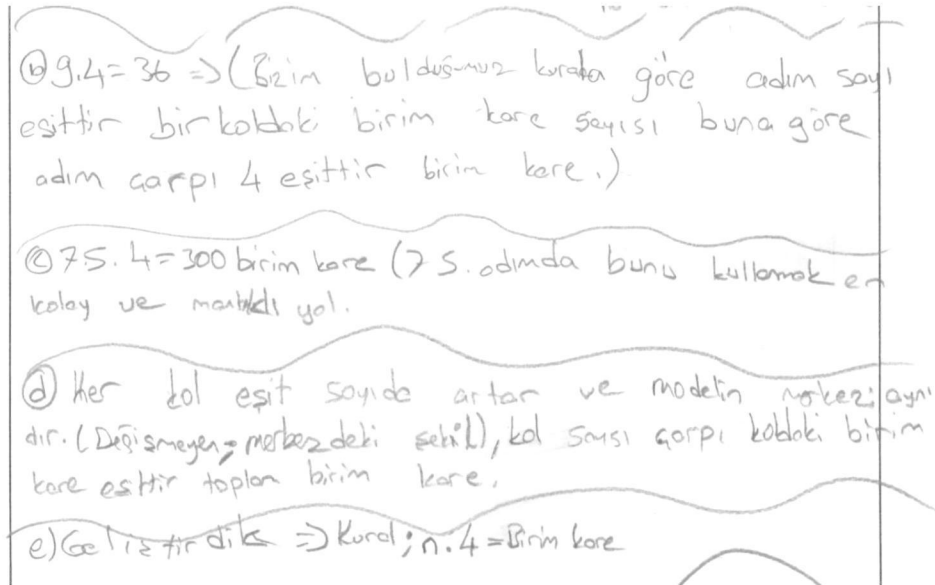 b) 9.4=36 => (Bizim bulduğumuz kurala göre adım sayı
eşittir bir koldaki birim kare sayısı buna göre
adım çarpı 4 eşittir birim kare.)
c) 75.4=300 birim kare (75. adımda bunu kullanmak en
kolay ve mantıklı yol.
d) Her kol eşit sayıda artar ve modelin merkezi aynı
dır. (Değişmeyen; merkezdeki şekil), kol sayısı çarpı koldaki birim
kare eşittir toplam birim kare.
e) Geliştirdik => Kural; n.4=Birim kare